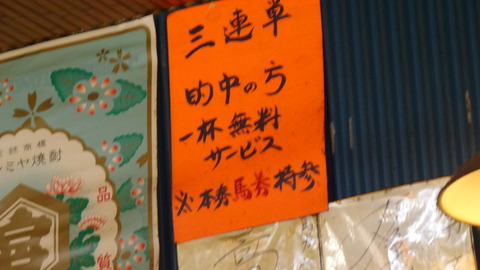 三連単
的中の方
一杯無料
サービス
※本券馬券持参
ミヤ焼酎
品
質